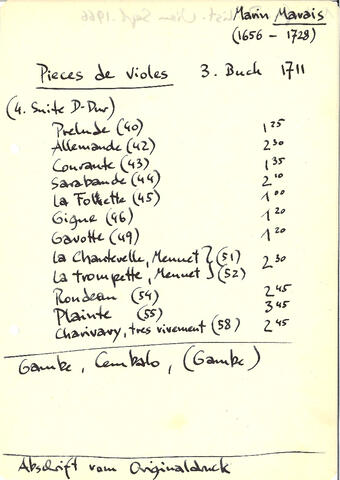 Marin Marais
(1656 - 1728)
Pieces de violes 3. Buch 1711
(4. Suite D-Dur)
Prelude (40) 1 25
Allemande (42) 2 30
Courante (43) 1 35
Sarabande (44) 2 10
La Folliette (45) 1 00
Gigue (46) 1 20
Gavotte (49) 1 20
La Chantevelle, Menuet } (51) 2 30
La trompette, Menuet } (52)
Rondeau (54) 2 45
Plainte (55) 3 45
Charivary, tres vivement (58) 2 45
Gambe, Cembalo, (Gambe)
Abschrift vom Originaldruck